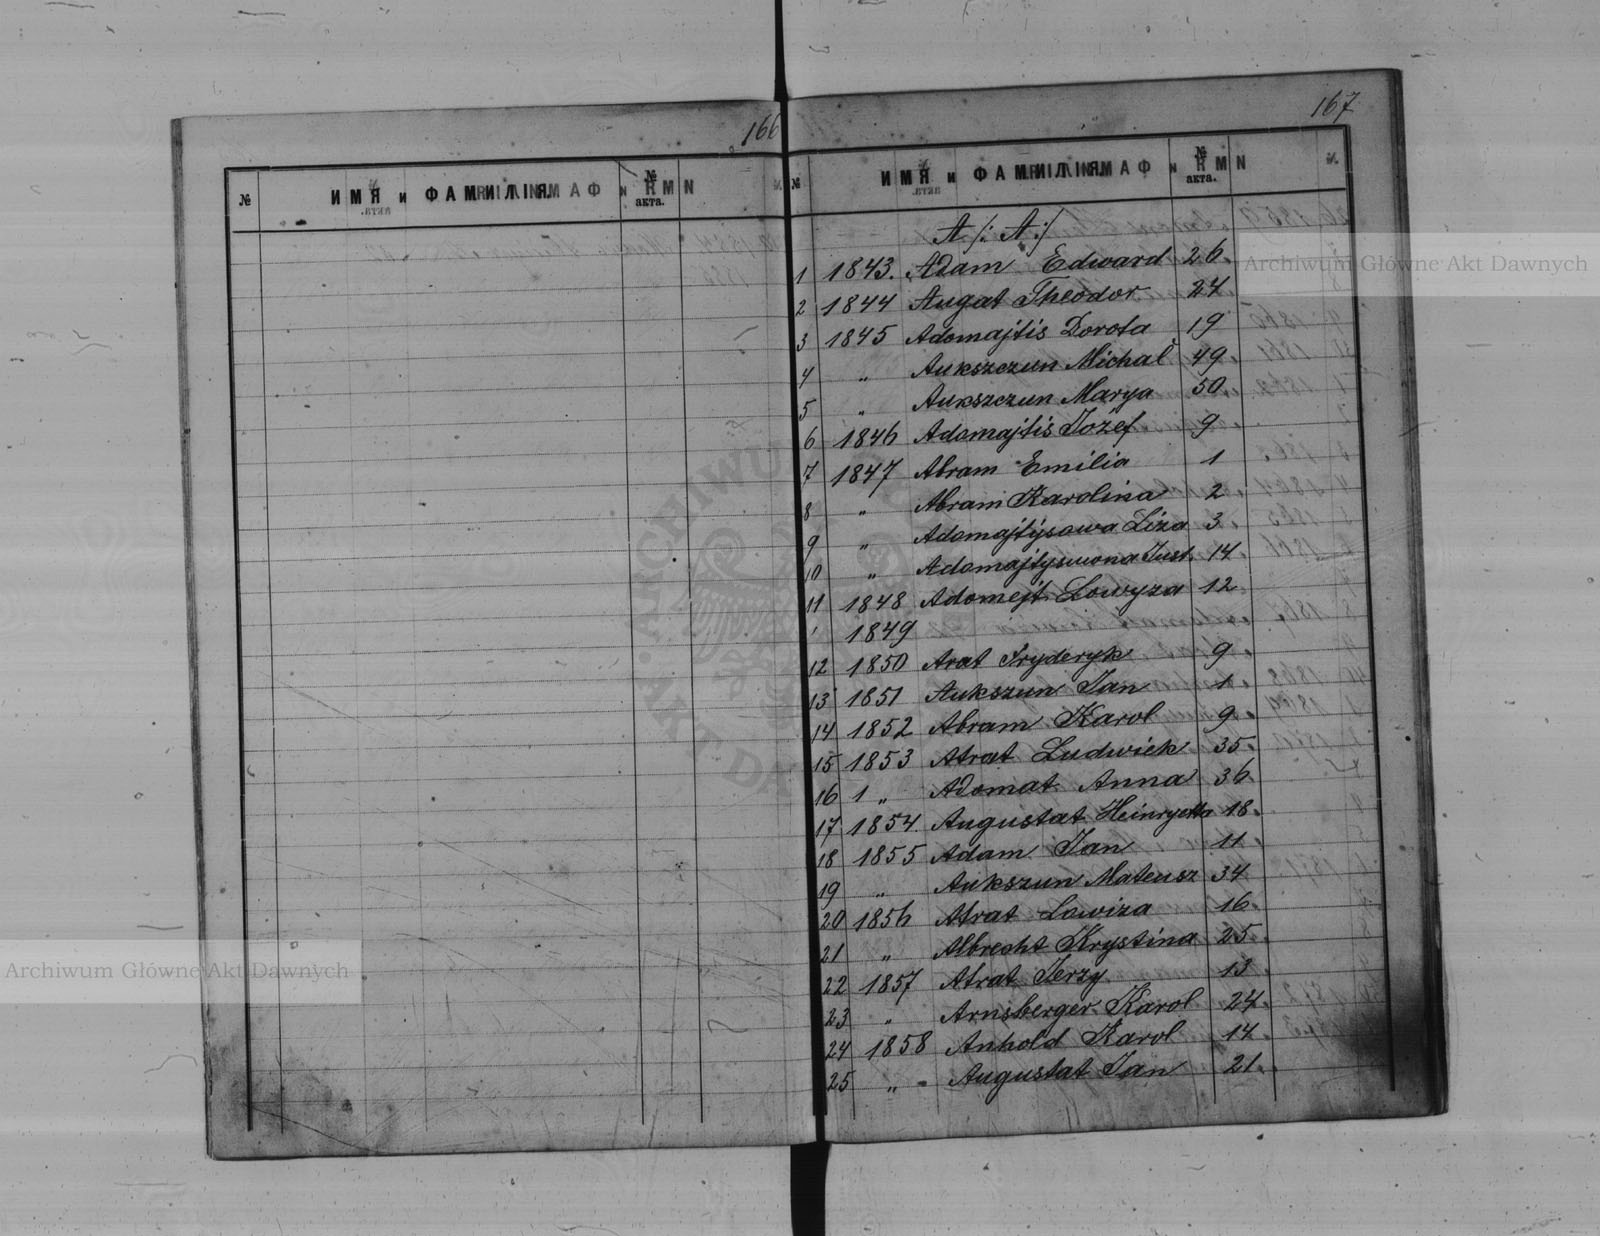 166
№ ИМЯ и ФАМИЛІЯ № акта.
167
№ ИМЯ и ФАМИЛІЯ № акта.
A /: A :/
1 1843. Adam Edward 26
2 1844 Augat Theodor 24
3 1845 Adomajtis Dorota 19
4 " Aukszczun Michał 49
5 " Aukszczun Marya 50
6 1846 Adomajtis Józef 9
7 1847 Abram Emilia 1
8 " Abram Karolina 2
9 " Adomajtysowa Liza 3
10 " Adomajtyswona Just. 14
11 1848 Adomejt Lowyza 12
1849
12 1850 Arat Fryderyk 9
13 1851 Aukszun Jan 1
14 1852 Abram Karol 9
15 1853 Atrat Ludwick 35
16 1 " Adomat Anna 36
17 1854. Augustat Heinryetta 18
18 1855 Adam Jan 11
19 " Aukszun Mateusz 34
20 1856 Atrat Lowiza 16
21 " Albrecht Krystina 25
22 1857 Atrat Jerzy 13
23 " Arnsberger Karol 24
24 1858 Anhold Karol 14
25 " Augustat Jan 21
Archiwum Główne Akt Dawnych
Archiwum Główne Akt Dawnych